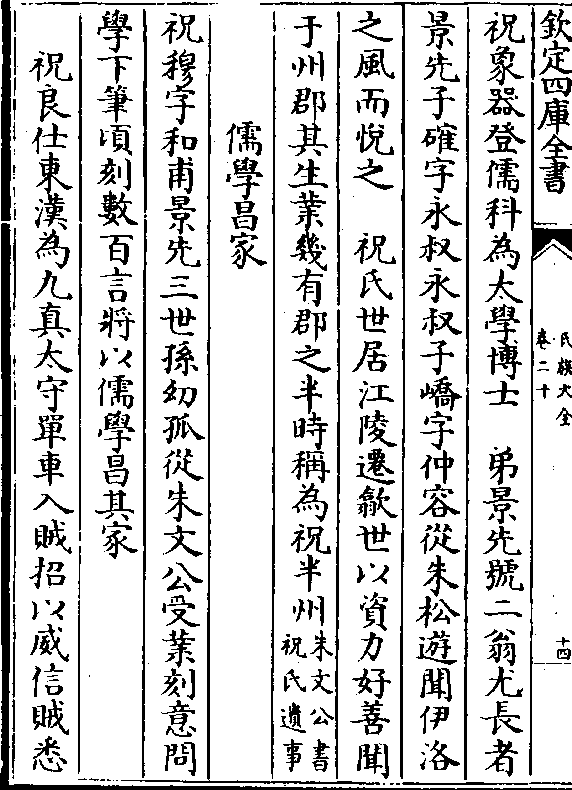 欽定四庫全書
氏族大全
卷二十
十四
祝象器登儒科為太學博士　弟景先號二翁尤長者
景先子確字永叔永叔子嶠字仲容從朱松遊聞伊洛
之風而悅之　祝氏世居江陵遷歙世以資力好善聞
于州郡其生業幾有郡之半時稱為祝半州朱文公書
祝氏遺事
儒學昌家
祝穆字和甫景先三世孫幼孤從朱文公受業刻意問
學下筆頃刻數百言將以儒學昌其家
祝良仕東漢為九真太守單車入賊招以威信賊悉